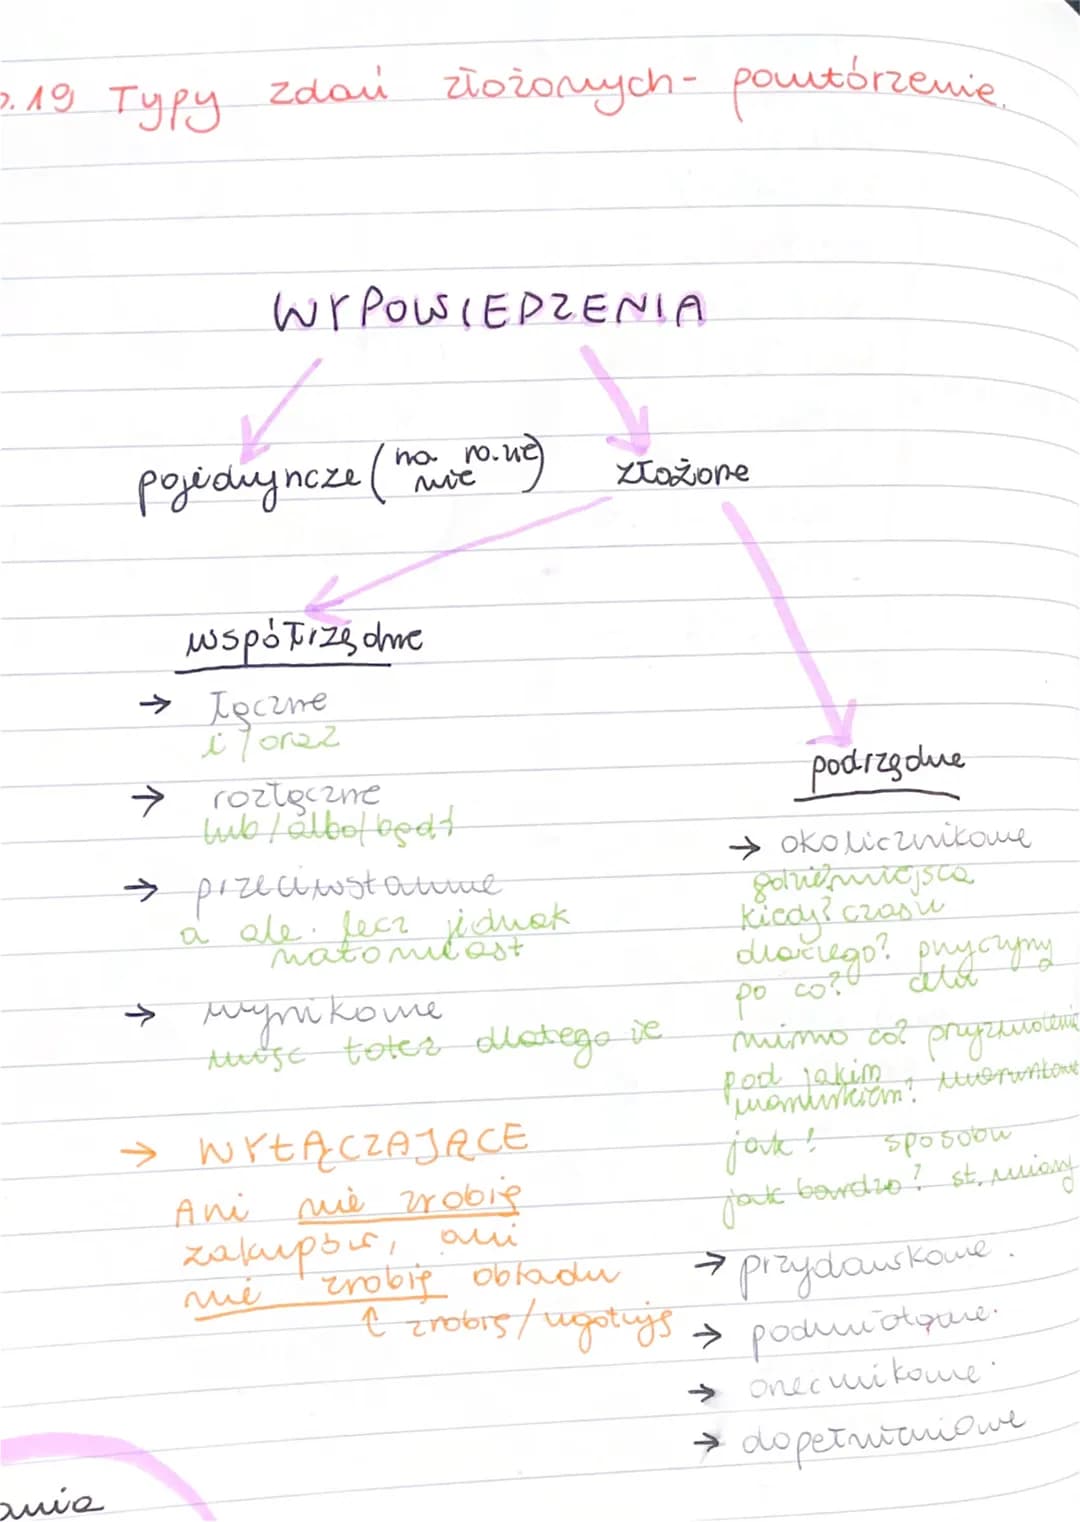 .19 Typy zdań złożonych - powtórzenie.
WYPOWIEDZENIA
pojedyncze ( na
nie )
złożone
współrzędne
→ łączne
i / oraz
→ rozłączne
lub / albo / bądź
→ przeciwstawne
a ale. lecz jednak
natomiast
→ wynikowe
więc toteż dlatego że
→ WYŁĄCZAJĄCE
Ani nie zrobię
zakupów, ani
nie zrobię obiadu
↑ zrobię / ugotuję
podrzędne
→ okolicznikowe
gdzie? miejsca
kiedy? czasu
dlaczego? przyczyny
po co? celu
mimo co? przyzwolenia
pod jakim
warunkiem? warunkowe
jak? sposobu
jak bardzo? st. miary
→ przydawkowe.
→ podmiotowe.
→ orzecznikowe.
→ dopełnieniowe
ania